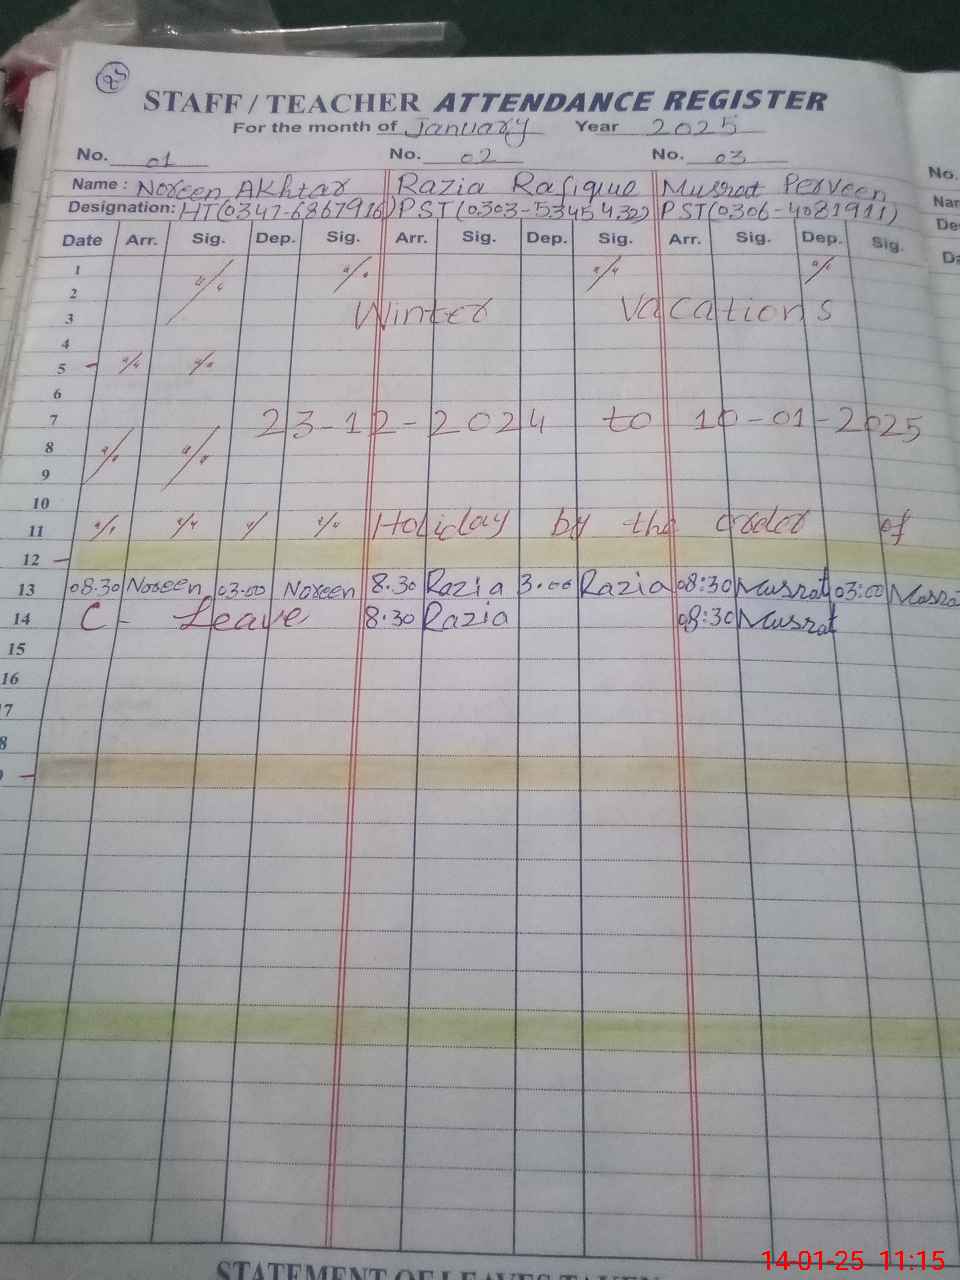 25
STAFF / TEACHER ATTENDANCE REGISTER
For the month of January Year 2025
No. 01 No. 02 No. 03 No.
Name : Noreen Akhtar Razia Rafique Musrat Perveen
Designation: HT(0347-6867916) PST(0303-5345430) PST(0306-4081911)
Date Arr. Sig. Dep. Sig. Arr. Sig. Dep. Sig. Arr. Sig. Dep. Sig.
1
2
3 Winter Vacations
4
5
6
7 23-12-2024 to 10-01-2025
8
9
10
11 Holiday by the order of
12
13 08.30 Noreen 03.00 Noreen 8.30 Razia 3.00 Razia 08:30 Musrat 03:00 Musrat
14 C - Leave 8.30 Razia 08:30 Musrat
15
16
17
STATEMENT OF LEAVES TAKEN
14-01-25 11:15